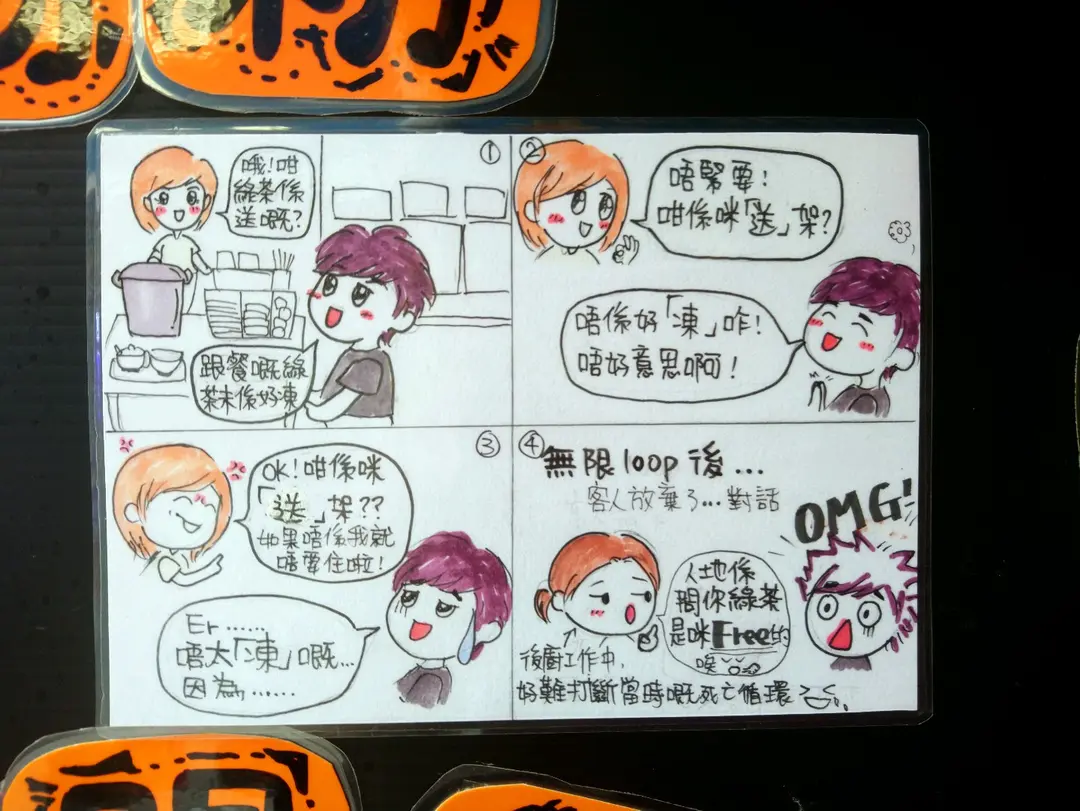 ①
哦!咁
綠茶係
送嘅?
跟餐嘅綠
茶未係好凍
②
唔緊要!
咁係咪「送」架?
唔係好「凍」咋!
唔好意思啊!
③
OK!咁係咪
「送」架??
如果唔係我就
唔要住啦!
Er......
唔太「凍」嘅...
因為......
④
無限loop後...
客人放棄了...對話
OMG!
人地係
問你綠茶
是咪Free的
唉
後廚工作中,
好難打斷當時嘅死亡循環